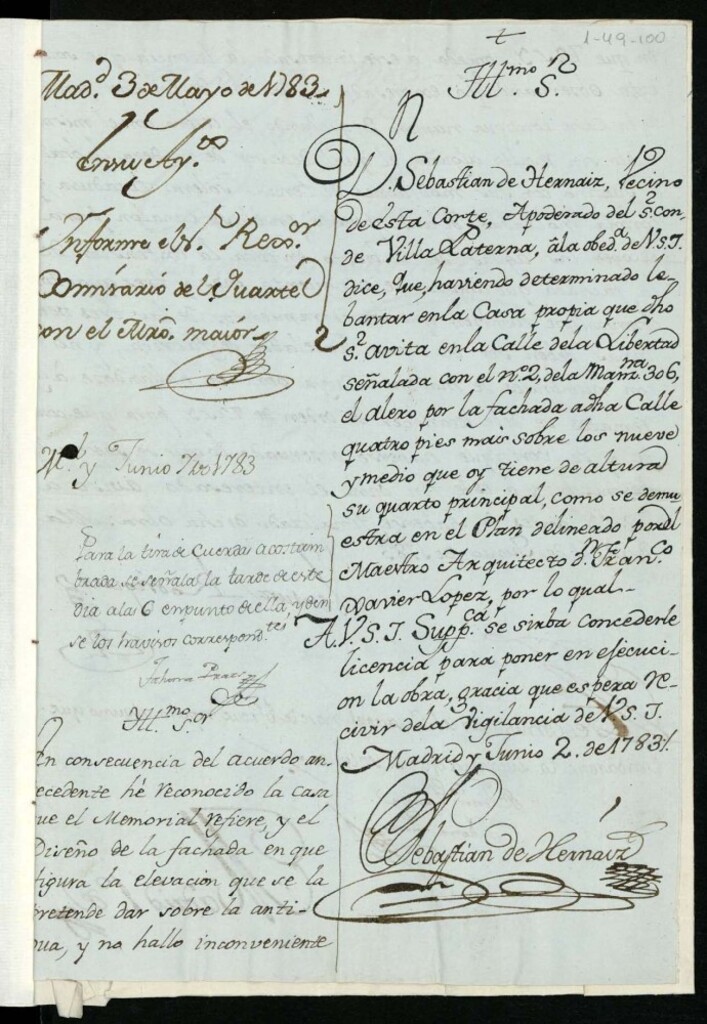 1-49-100
Mad.d 3 de Mayo de 1783
En su Ay.to
Informe el S.r Rex.or
Comisario del Quartel
con el Mro. maior
M.d y Junio 7 de 1783
Para la tira de Cuerdas acostum
brada se señala la tarde de este
dia a las 6 en punto de ella, y den
se los havisos correspond.tes
Ill.mo S.or
En consecuencia del acuerdo an-
tecedente hé reconocido la casa
que el Memorial refiere, y el
Diseño de la fachada en que
figura la elevacion que se la
pretende dar sobre la anti-
gua, y no hallo inconveniente
Ill.mo S.r
D. Sebastian de Hernaiz, vecino
de ésta Corte, Apoderado del s.r con-
de Villa Paterna, â la obed.a de V.S.I.
dice, que, haviendo determinado le-
bantar en la Casa propia que dho
s.r avita en la Calle de la Libertad
señalada con el nº 2, de la Manz.na 306,
el alero por la fachada a dha Calle
quatro pies mais sobre los nueve
y medio que oy tiene de altura
su quarto principal, como se demu
estra en el Plan delineado por el
Maestro Arquitecto d.n Fran.co
Xavier Lopez, por lo qual
A.V.S.I. Supp.ca se sirba concederle
licencia para poner en ejecuci-
on la obra, gracia que espera re-
civir de la Vigilancia de V.S.I.
Madrid y Junio 2. de 1783
Sebastian de Hernaiz